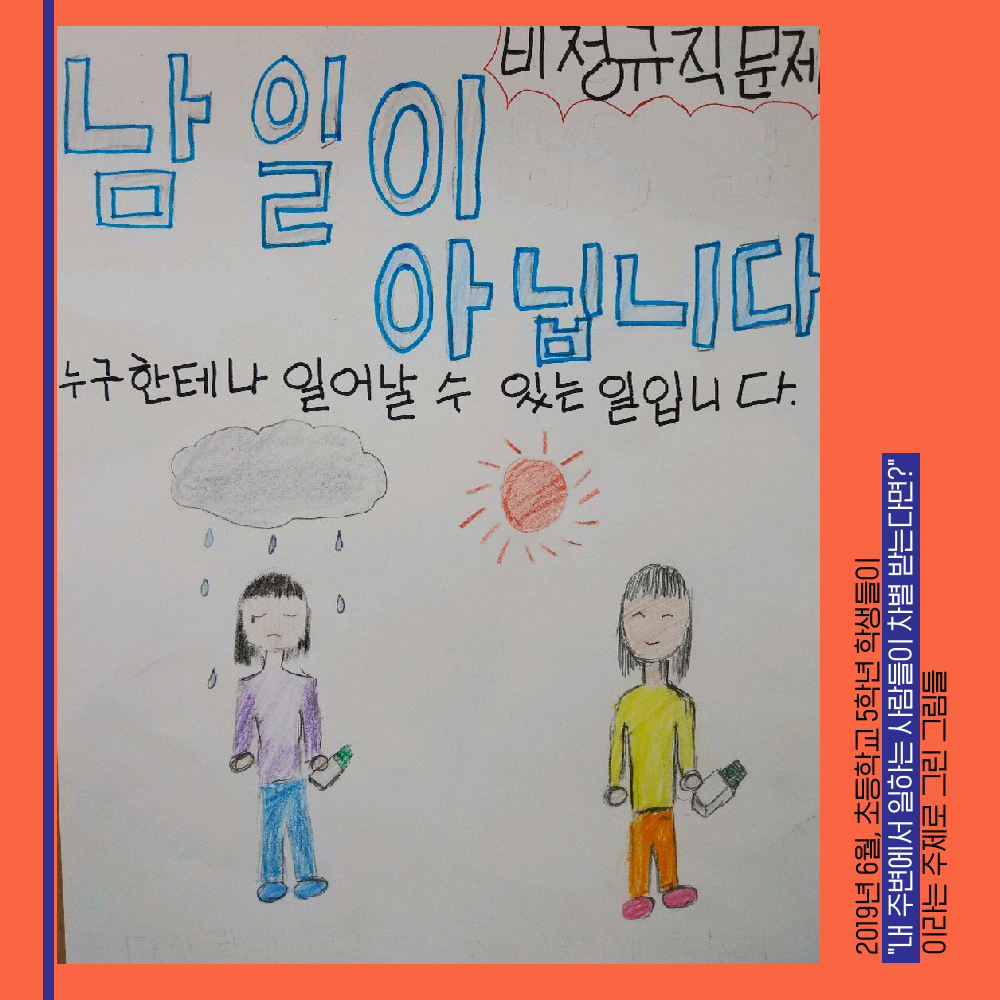 비정규직문제
남 일이
아닙니다
누구한테나 일어날 수 있는 일입니다.
2019년 6월, 초등학교 5학년 학생들이
"내 주변에서 일하는 사람들이 차별 받는다면?"
이라는 주제로 그린 그림들